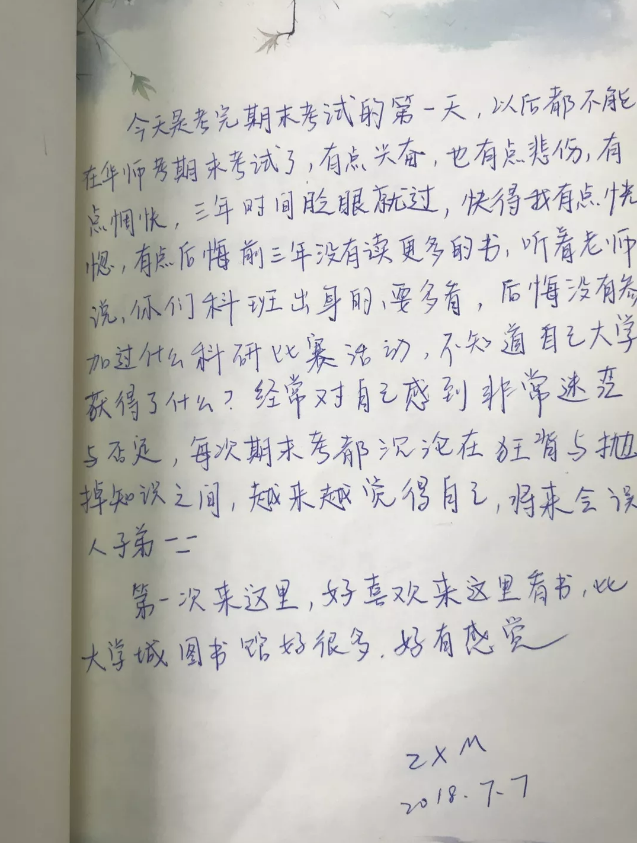 今天是考完期末考试的第一天，以后都不能
在华师考期末考试了，有点兴奋，也有点悲伤，有
点惆怅，三年时间脸眼就过，快得我有点恍
惚，有点后悔前三年没有读更多的书，听着老师
说，你们科班出身的，要多看，后悔没有参
加过什么科研比赛活动，不知道自己大学
获得了什么？经常对自己感到非常迷茫
与否定，每次期末考都沉沦在狂背与抛
掉知识之间，越来越觉得自己，将来会误
人子弟二二
第一次来这里，好喜欢来这里看书，比
大学城图书馆好很多，好有感觉
ZXM
2018.7.7